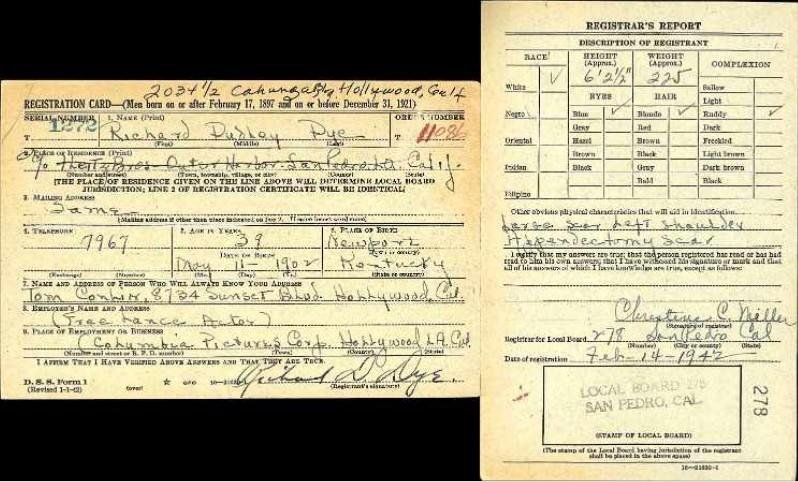 2034 1/2 Cahunga Hollywood, Calif
REGISTRATION CARD—(Men born on or after February 17, 1897 and on or before December 31, 1921)
SERIAL NUMBER 1. NAME (Print) ORDER NUMBER
T 1272 Richard Dudley Dye T 11086
(First) (Middle) (Last)
2. PLACE OF RESIDENCE (Print)
c/o Bros. Outer Harbor San Pedro, LA. Calif.
(Number and street) (Town, township, village, or city) (County) (State)
[THE PLACE OF RESIDENCE GIVEN ON THE LINE ABOVE WILL DETERMINE LOCAL BOARD
JURISDICTION; LINE 2 OF REGISTRATION CERTIFICATE WILL BE IDENTICAL]
3. MAILING ADDRESS
Same
[Mailing address if other than place indicated on line 2. If same insert word same]
4. TELEPHONE 5. AGE IN YEARS 6. PLACE OF BIRTH
7967 39 Newport
DATE OF BIRTH (Town or county)
May 11 1902 Kentucky
(Exchange) (Number) (Mo.) (Day) (Yr.) (State or country)
7. NAME AND ADDRESS OF PERSON WHO WILL ALWAYS KNOW YOUR ADDRESS
Tom 8734 Sunset Blvd. Hollywood, Cal.
8. EMPLOYER'S NAME AND ADDRESS
(Free Lance Actor)
9. PLACE OF EMPLOYMENT OR BUSINESS
(Columbia Pictures Corp. Hollywood LA. Cal.
(Number and street or R. F. D. number) (Town) (County) (State)
I AFFIRM THAT I HAVE VERIFIED ABOVE ANSWERS AND THAT THEY ARE TRUE.
D. S. S. Form 1
(Revised 1-1-42) (over) Richard D. Dye
(Registrant's signature)
REGISTRAR'S REPORT
DESCRIPTION OF REGISTRANT
RACE HEIGHT (Approx.) WEIGHT (Approx.) COMPLEXION
White 6' 2½" 225 Sallow
EYES HAIR Light
Negro Blue Blonde Ruddy
Gray Red Dark
Oriental Hazel Brown Freckled
Brown Black Light brown
Indian Black Gray Dark brown
Bald Black
Filipino
Other obvious physical characteristics that will aid in identification
Large Scar Left Shoulder
Appendectomy Scar
I certify that my answers are true; that the person registered has read or has had
read to him his own answers; that I have witnessed his signature or mark and that
all of his answers of which I have knowledge are true, except as follows:
Christine C. Miller
(Signature of registrar)
Registrar for Local Board 278 San Pedro Cal
(Number) (City or county) (State)
Date of registration Feb-14-1942
LOCAL BOARD 278
SAN PEDRO, CAL.
278
(STAMP OF LOCAL BOARD)
(The stamp of the Local Board having jurisdiction of the registrant
shall be placed in the above space)
16—21630-1